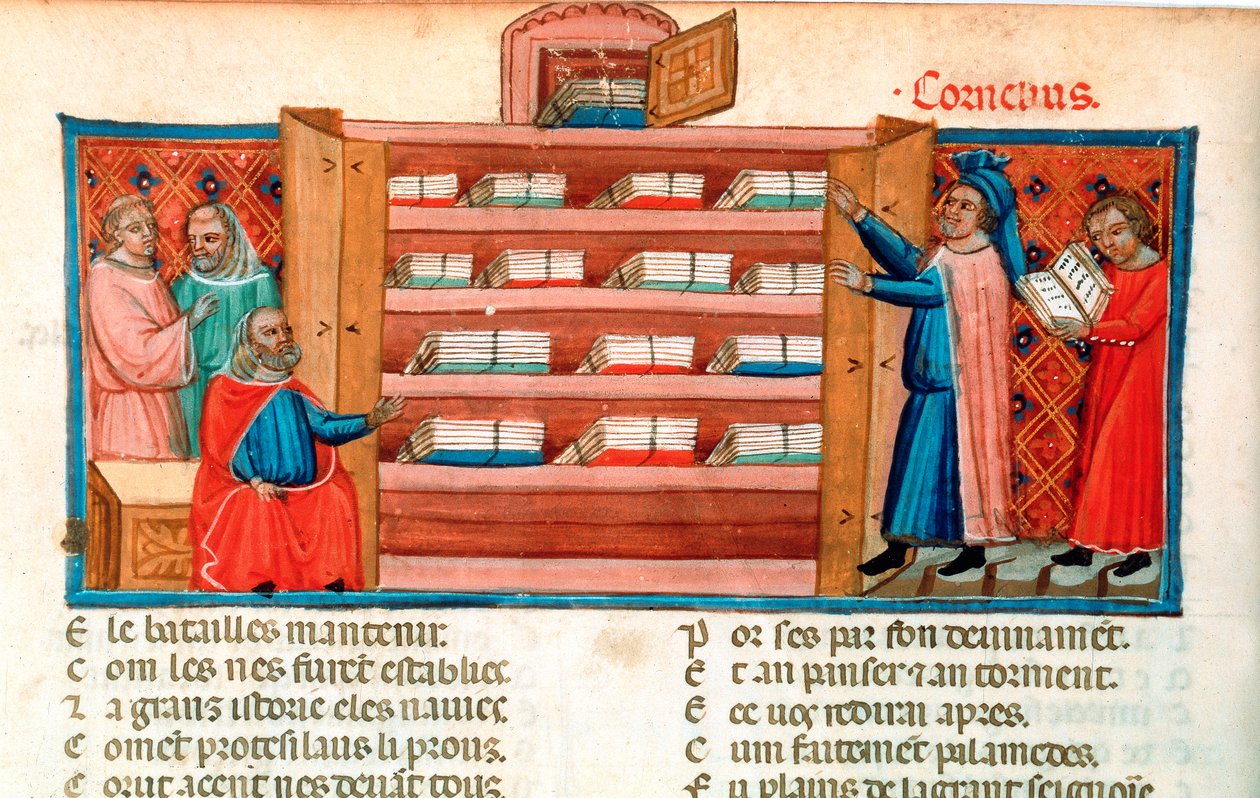 · Cornelius.
E le batailles mantenir.
C om les nes furēt establies.
L a granz istorie eles naives.
C omēt protesilaus li prouz.
C orut accent nes devāt touz.
P or ses par son devinamēt.
E t an panser ⁊ an torment.
E ce uos redirai apres.
C um faitemēt palamedes.
F u plains de la grant seignoīe